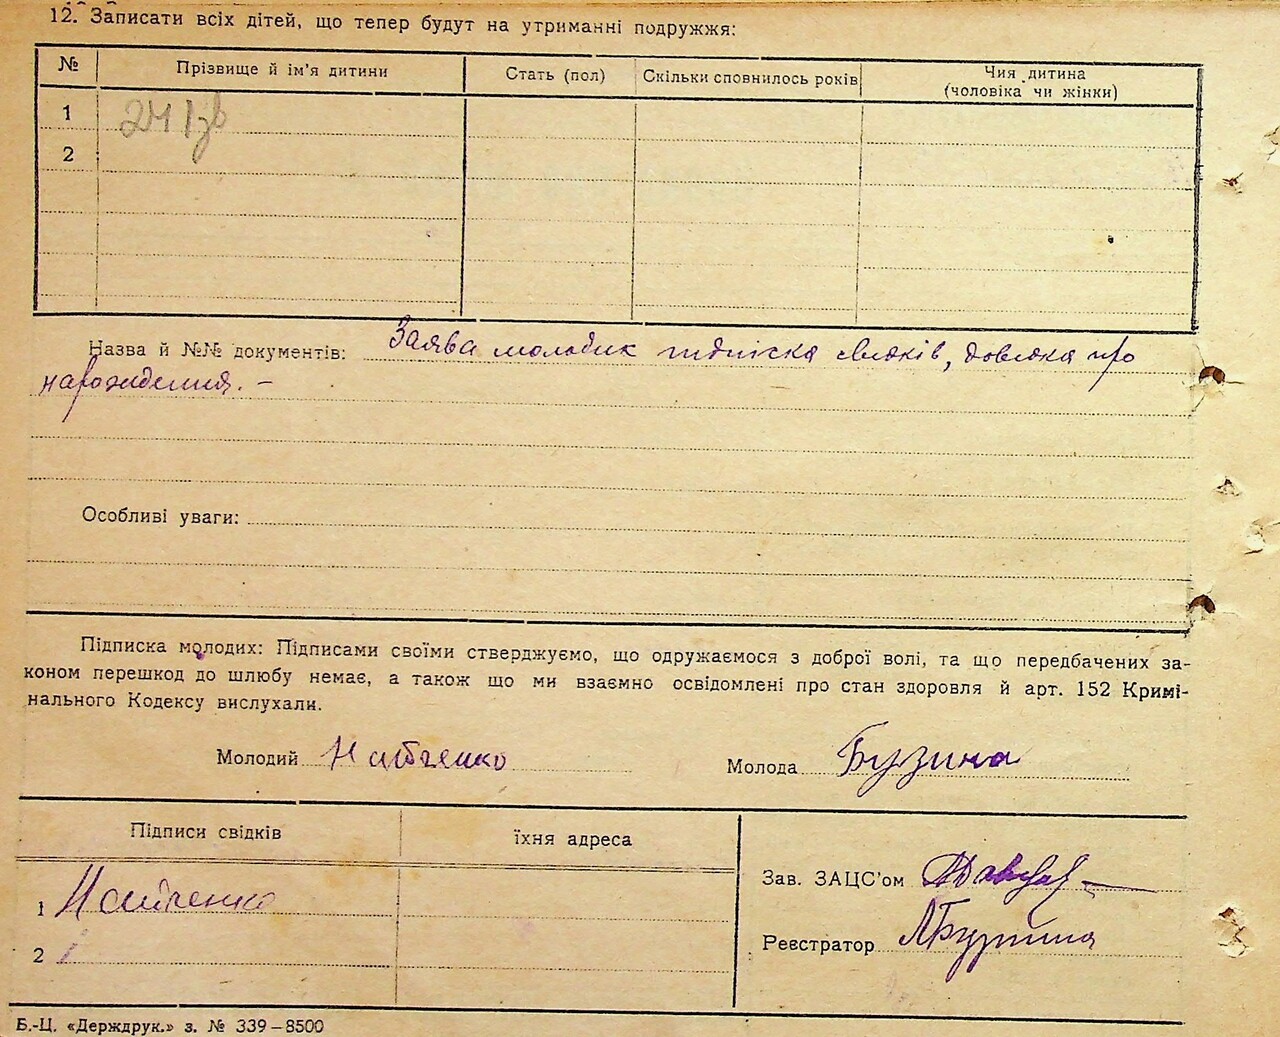 12. Записати всіх дітей, що тепер будут на утриманні подружжя:
№ Прізвище й ім'я дитини Стать (пол) Скільки сповнилось років Чия дитина
(чоловіка чи жінки)
1
2
Назва й №№ документів: Заява молодик підпіска свідків, довідка про
нарождения. –
Особливі уваги:
Підписка молодих: Підписами своїми стверджуємо, що одружаємося з доброї волі, та що передбачених за-
коном перешкод до шлюбу немає, а також що ми взаємно освідомлені про стан здоровля й арт. 152 Кримі-
нального Кодексу вислухали.
Молодий Молода Бузина
Підписи свідків їхня адреса
Зав. ЗАЦС'ом
1
Реєстратор
2
Б.-Ц. «Держдрук.» з. № 339–8500